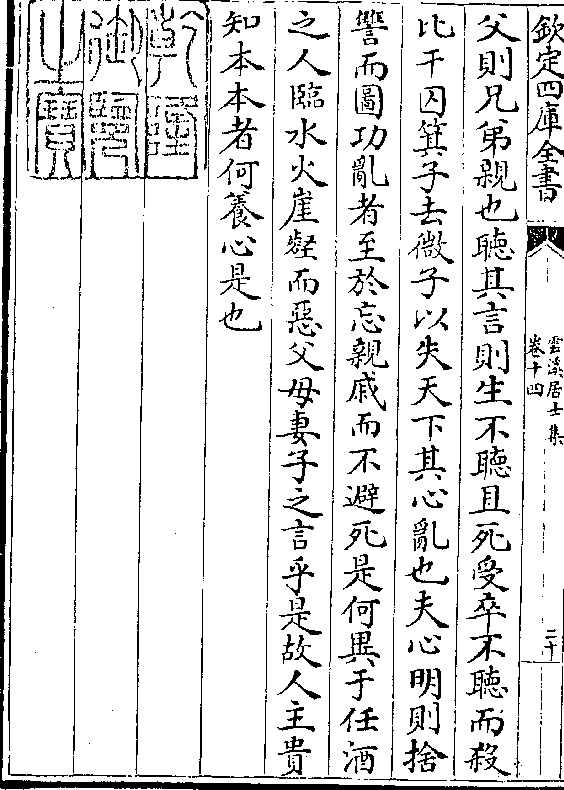 欽定四庫全書
雲溪居士集
卷十四
二十
父則兄弟親也聽其言則生不聽且死受卒不聽而殺
比干囚箕子去微子以失天下其心亂也夫心明則捨
讐而圖功亂者至於忘親戚而不避死是何異于任酒
之人臨水火崖壑而惡父母妻子之言乎是故人主貴
知本本者何養心是也
乾隆
御覽
之寶